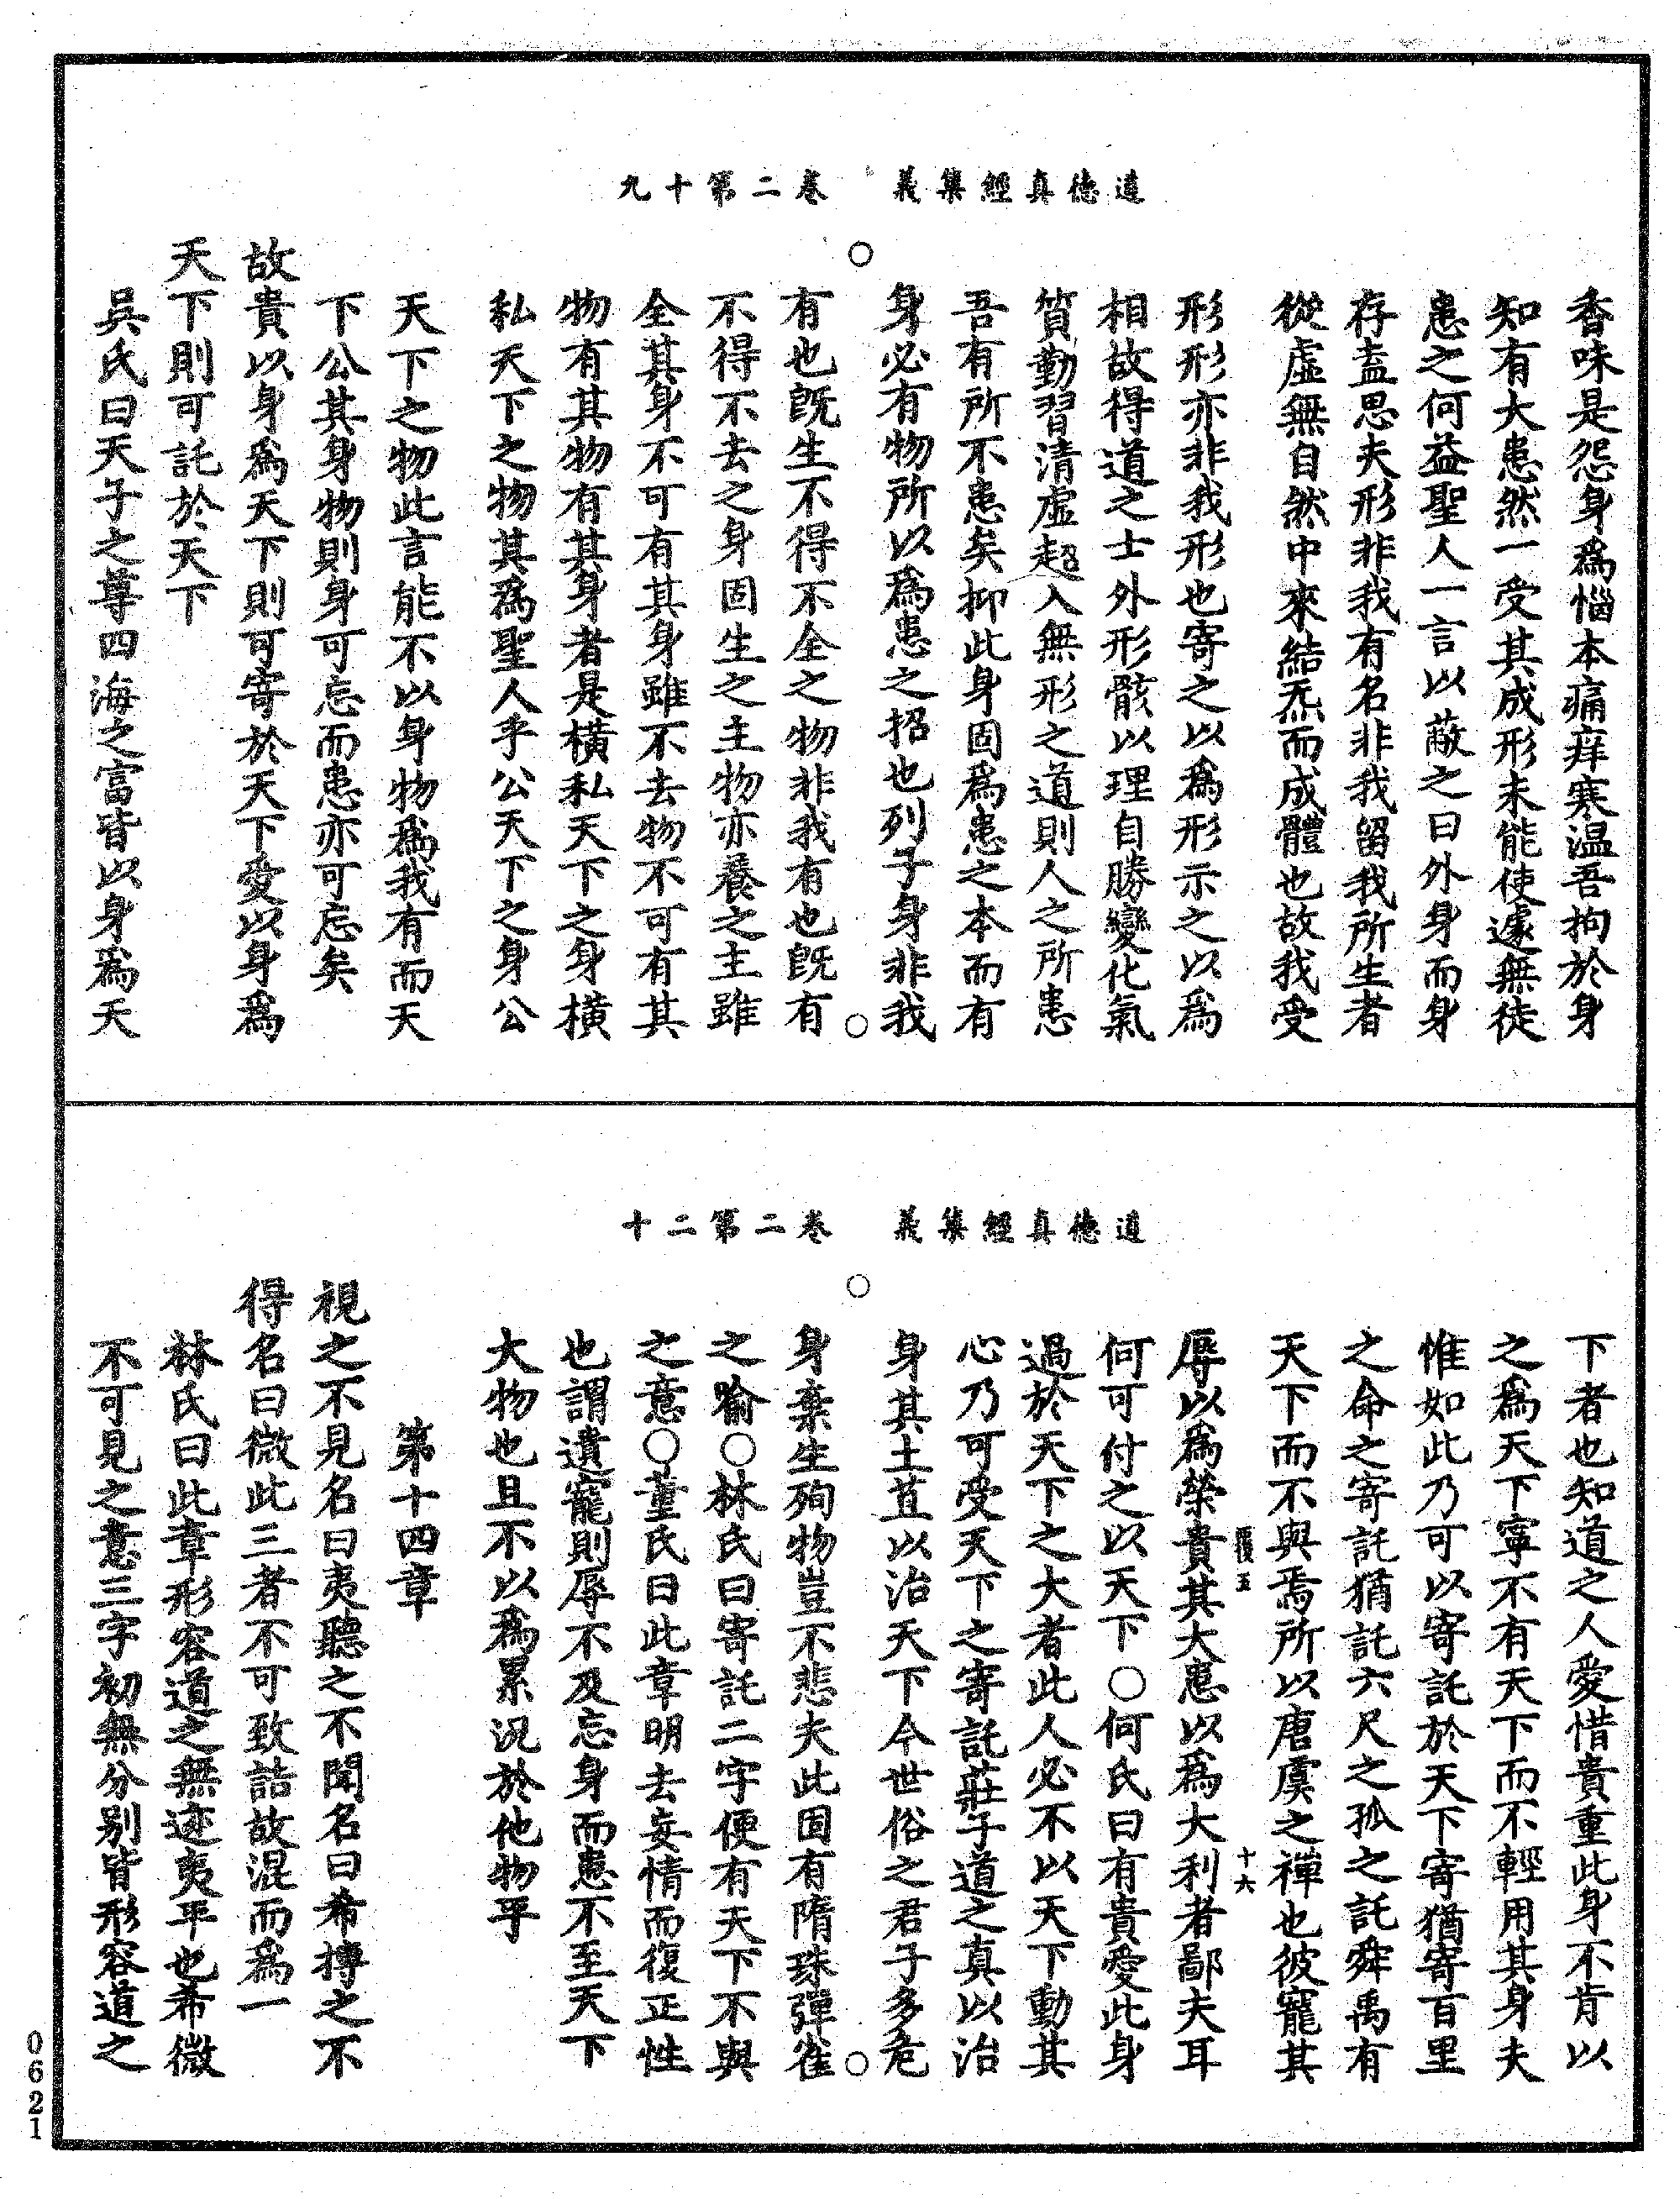 道德真經集義　卷二第十九
香味是怨身爲惱本痛痒寒温吾拘於身
知有大患然一受其成形未能使遽無徒
患之何益聖人一言以蔽之曰外身而身
存盍思夫形非我有名非我留我所生者
從虛無自然中來結炁而成體也故我受
形形亦非我形也寄之以爲形示之以爲
相故得道之士外形骸以理自勝變化氣
質勤習清虛超入無形之道則人之所患
吾有所不患矣抑此身固爲患之本而有
身必有物所以爲患之招也列子身非我
有也旣生不得不全之物非我有也旣有
不得不去之身固生之主物亦養之主雖
全其身不可有其身雖不去物不可有其
物有其物有其身者是橫私天下之身橫
私天下之物其爲聖人乎公天下之身公
天下之物此言能不以身物爲我有而天
下公其身物則身可忘而患亦可忘矣
故貴以身爲天下則可寄於天下愛以身爲
天下則可託於天下
吳氏曰天子之尊四海之富皆以身爲天
道德真經集義　卷二第二十
下者也知道之人愛惜貴重此身不肯以
之爲天下寧不有天下而不輕用其身夫
惟如此乃可以寄託於天下寄猶寄百里
之命之寄託猶託六尺之孤之託舜禹有
天下而不與焉所以唐虞之禪也彼寵其
十六
辱以爲榮貴其大患以爲大利者鄙夫耳
何可付之以天下○何氏曰有貴愛此身
過於天下之大者此人必不以天下動其
心乃可受天下之寄託莊子道之真以治
身其土苴以治天下今世俗之君子多危
身棄生殉物豈不悲夫此固有隋珠彈雀
之喻○林氏曰寄託二字便有天下不與
之意○董氏曰此章明去妄情而復正性
也謂遺寵則辱不及忘身而患不至天下
大物也且不以爲累況於他物乎
第十四章
視之不見名曰夷聽之不聞名曰希摶之不
得名曰微此三者不可致詰故混而爲一
林氏曰此章形容道之無迹夷平也希微
不可見之意三字初無分别皆形容道之
0621